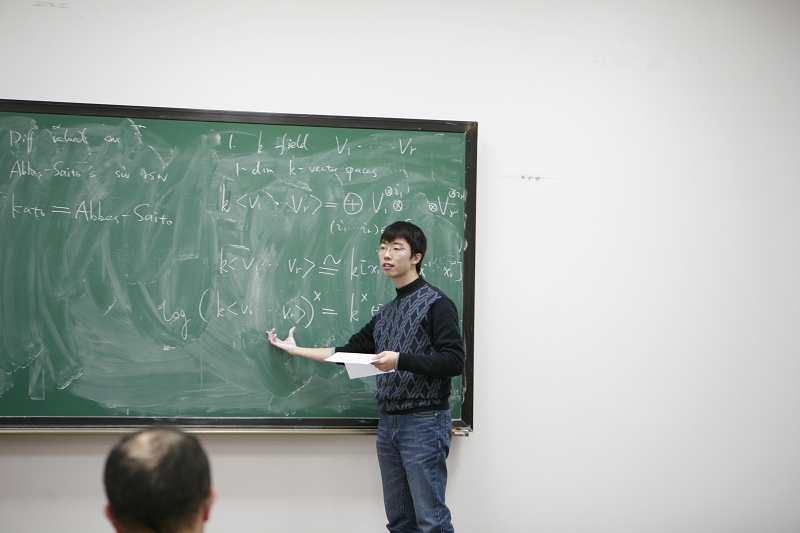 Diff valued
Abbes-Saito's sw rsw
Kato = Abbes-Saito
1. k field V₁ ⋯ Vr
1-dim k-vector spaces
k<V₁ ⋯ Vr> = ⊕ V₁^⊗i₁ ⊗ ⊗Vr^⊗ir
(i₁ ⋯ ir)
k<V₁ ⋯ Vr> ≅ k[
log (k<V₁ ⋯ Vr>)^× = k^×